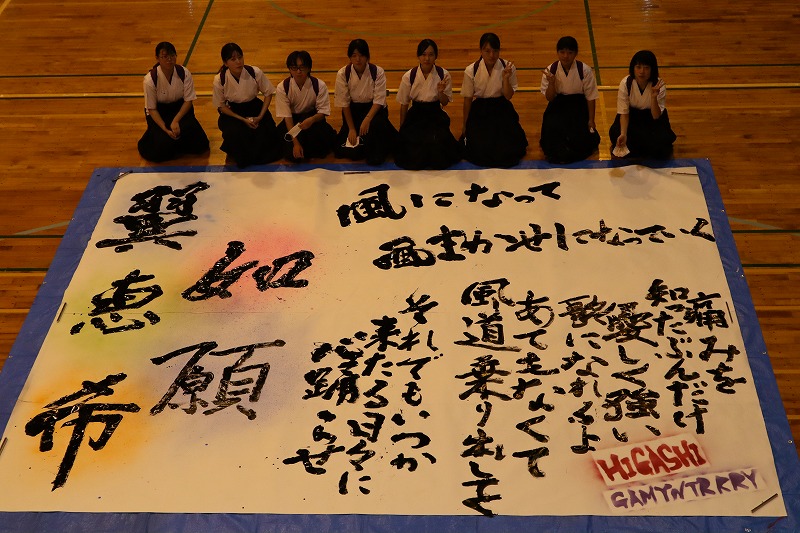 風になって
風まかせになっていく
痛みを
知ったぶんだけ
優しく強い
歌になれるよ
あてもなくて
風道乗り出して
それでもいつか
来たる日々に
心踊らせ
如願
翼恵希
HIGASHI
GAMYNTRKRY